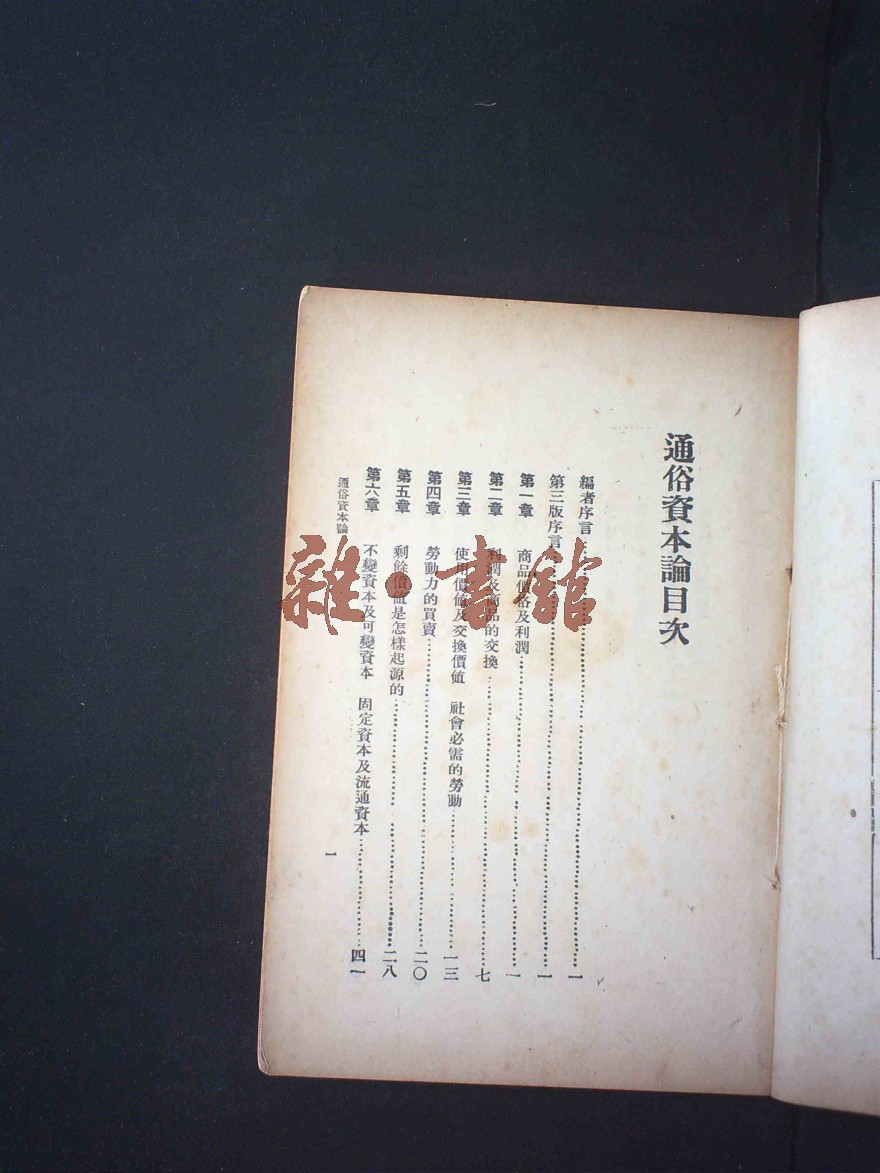 通俗資本論目次
編者序言⋯⋯一
第三版序言⋯⋯一
第一章　商品價格及利潤⋯⋯一
第二章　利潤及商品的交換⋯⋯七
第三章　使用價值及交換價值　社會必需的勞動⋯⋯一三
第四章　勞動力的買賣⋯⋯二〇
第五章　剩餘價值是怎樣起源的⋯⋯二八
第六章　不變資本及可變資本　固定資本及流通資本⋯⋯四一
通俗資本論
一
雜·書館